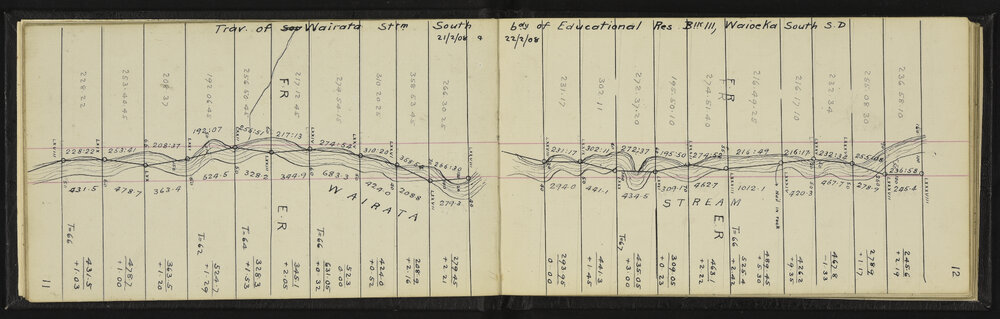 Trav. of Wairata Strm South bdy of Educational Res Blk III, Waioeka South S.D
21/2/08 & 22/2/08
228·22
253·44·45
208·37
192·06·45
256·50·45
217·12·45
274·54·15
310·20·25
358·53·45
266·30·25
231·17
302·11
272·37·20
195·50·10
274·51·40
216·49·25
216·17·10
232·34
255·08·30
236·58·10
F.R
F.R
228:22
253:41
208:37
192:07
256:51
217:13
274:54
310:20
358:54
266:30
231:17
302:11
272:37
195:50
274:52
216:49
216:17
232:34
255:08
236:58
431·5
478·7
363·4
524·5
328·2
344·9
683·3
424·0
208·8
279·3
294·0
441·1
434·5
309·2
462·7
1012·1
420·3
467·7
278·9
246·4
WAIRATA
STREAM
Nail in rock
E.R
E.R
T=66
T=62
T=64
T=66
T=67
T=66
431·5
+1·03
478·7
+1·00
363·5
+1·20
524·7
+1·29
328·3
+1·23
345·1
+2·05
631·05
+1·32
52·3
0·00
424·0
+0·52
208·9
+2·16
279·45
+2·21
293·95
0·00
441·3
+1·45
435·05
+3·00
309·05
+0·23
463·1
+2·22
525·4
+2·42
489·45
+5·30
426·2
+9·35
467·8
-1·33
278·9
+1·17
245·6
+2·19
11
12